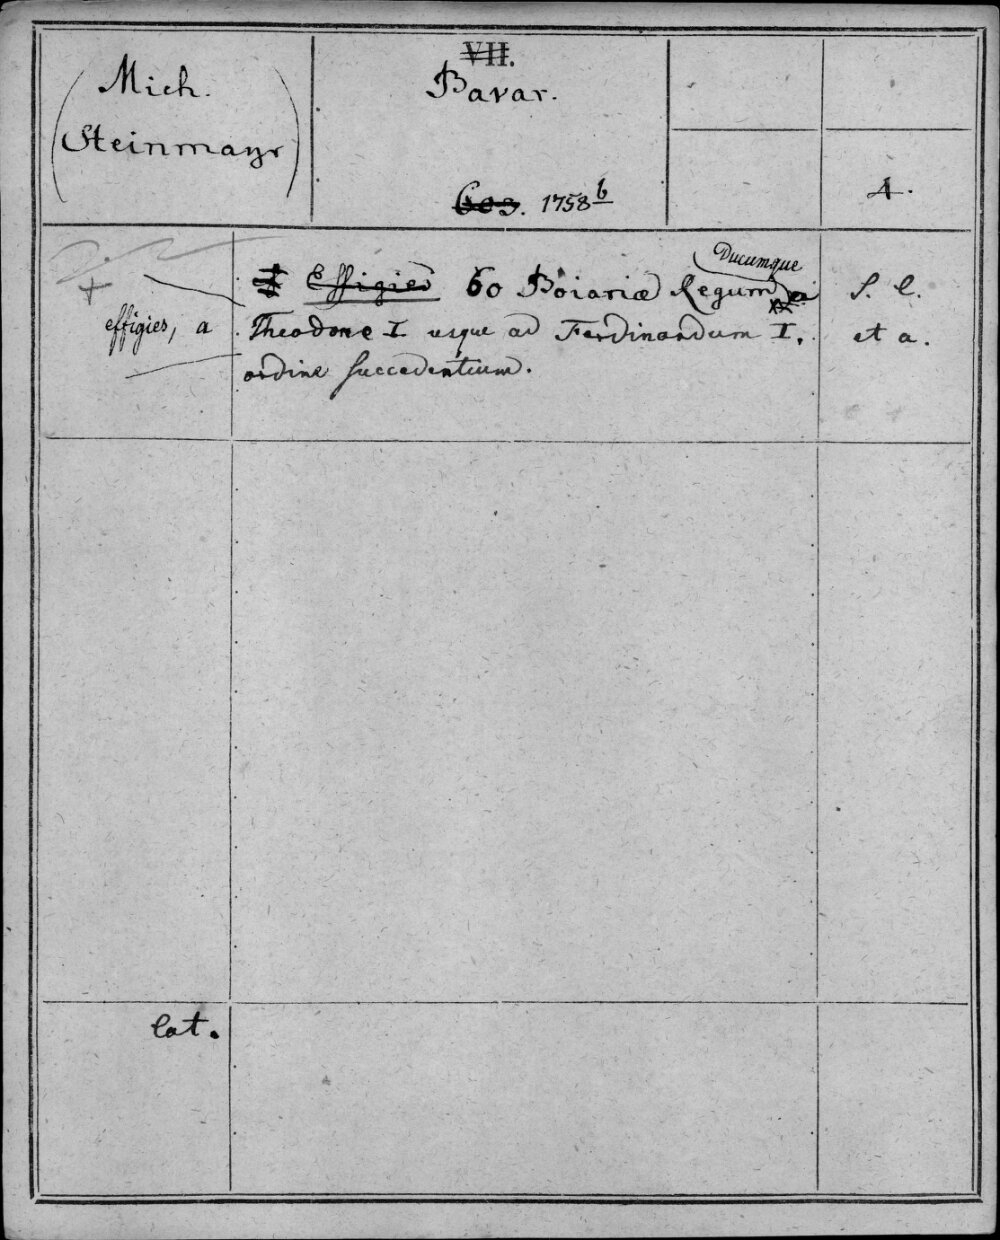 Mich.
(Steinmayr)
VII.
Bavar.
Ges. 1758 b
4.
effigies, a
Effigies 60 Boiariæ Regum Ducumque a
Theodone I usque ad Ferdinandum I.
ordine succedentium.
S. l.
et a.
lat.